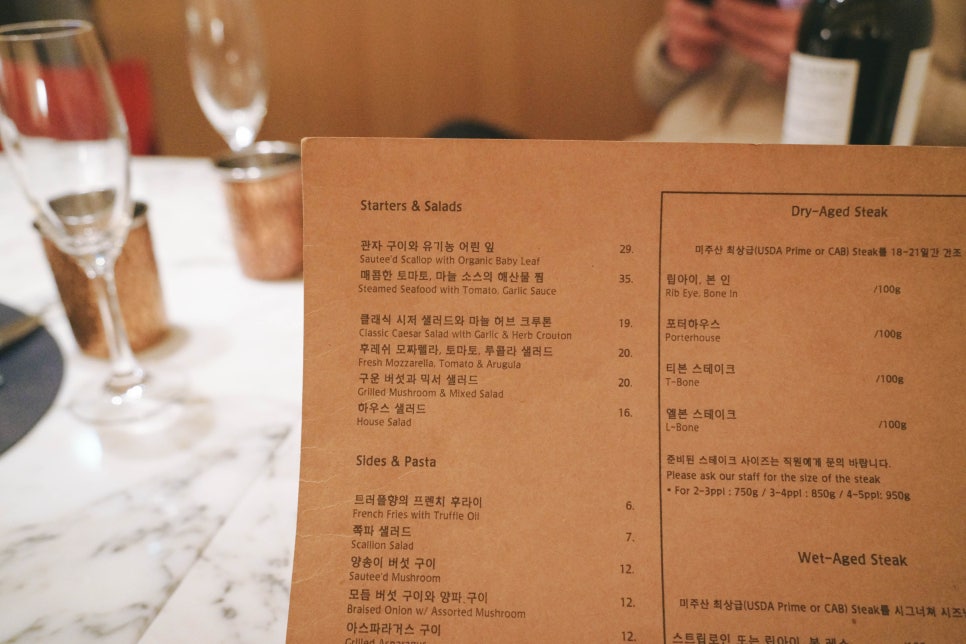 Starters & Salads
관자 구이와 유기농 어린 잎
Sautee'd Scallop with Organic Baby Leaf
29.
매콤한 토마토, 마늘 소스의 해산물 찜
Steamed Seafood with Tomato, Garlic Sauce
35.
클래식 시저 샐러드와 마늘 허브 크루톤
Classic Caesar Salad with Garlic & Herb Crouton
19.
후레쉬 모짜렐라, 토마토, 루콜라 샐러드
Fresh Mozzarella, Tomato & Arugula
20.
구운 버섯과 믹서 샐러드
Grilled Mushroom & Mixed Salad
20.
하우스 샐러드
House Salad
16.
Sides & Pasta
트러플향의 프렌치 후라이
French Fries with Truffle Oil
6.
쪽파 샐러드
Scallion Salad
7.
양송이 버섯 구이
Sautee'd Mushroom
12.
모듬 버섯 구이와 양파 구이
Braised Onion w/ Assorted Mushroom
12.
아스파라거스 구이
Grilled Asparagus
12.
Dry-Aged Steak
미주산 최상급(USDA Prime or CAB) Steak를 18-21일간 건조
립아이, 본 인
Rib Eye, Bone in
/100g
포터하우스
Porterhouse
/100g
티본 스테이크
T-Bone
/100g
엘본 스테이크
L-Bone
/100g
준비된 스테이크 사이즈는 직원에게 문의 바랍니다.
Please ask our staff for the size of the steak
• For 2-3ppl : 750g / 3-4ppl : 850g / 4-5ppl: 950g
Wet-Aged Steak
미주산 최상급(USDA Prime or CAB) Steak를 시그너쳐
스트립로인 또는 립아이, 본 레스